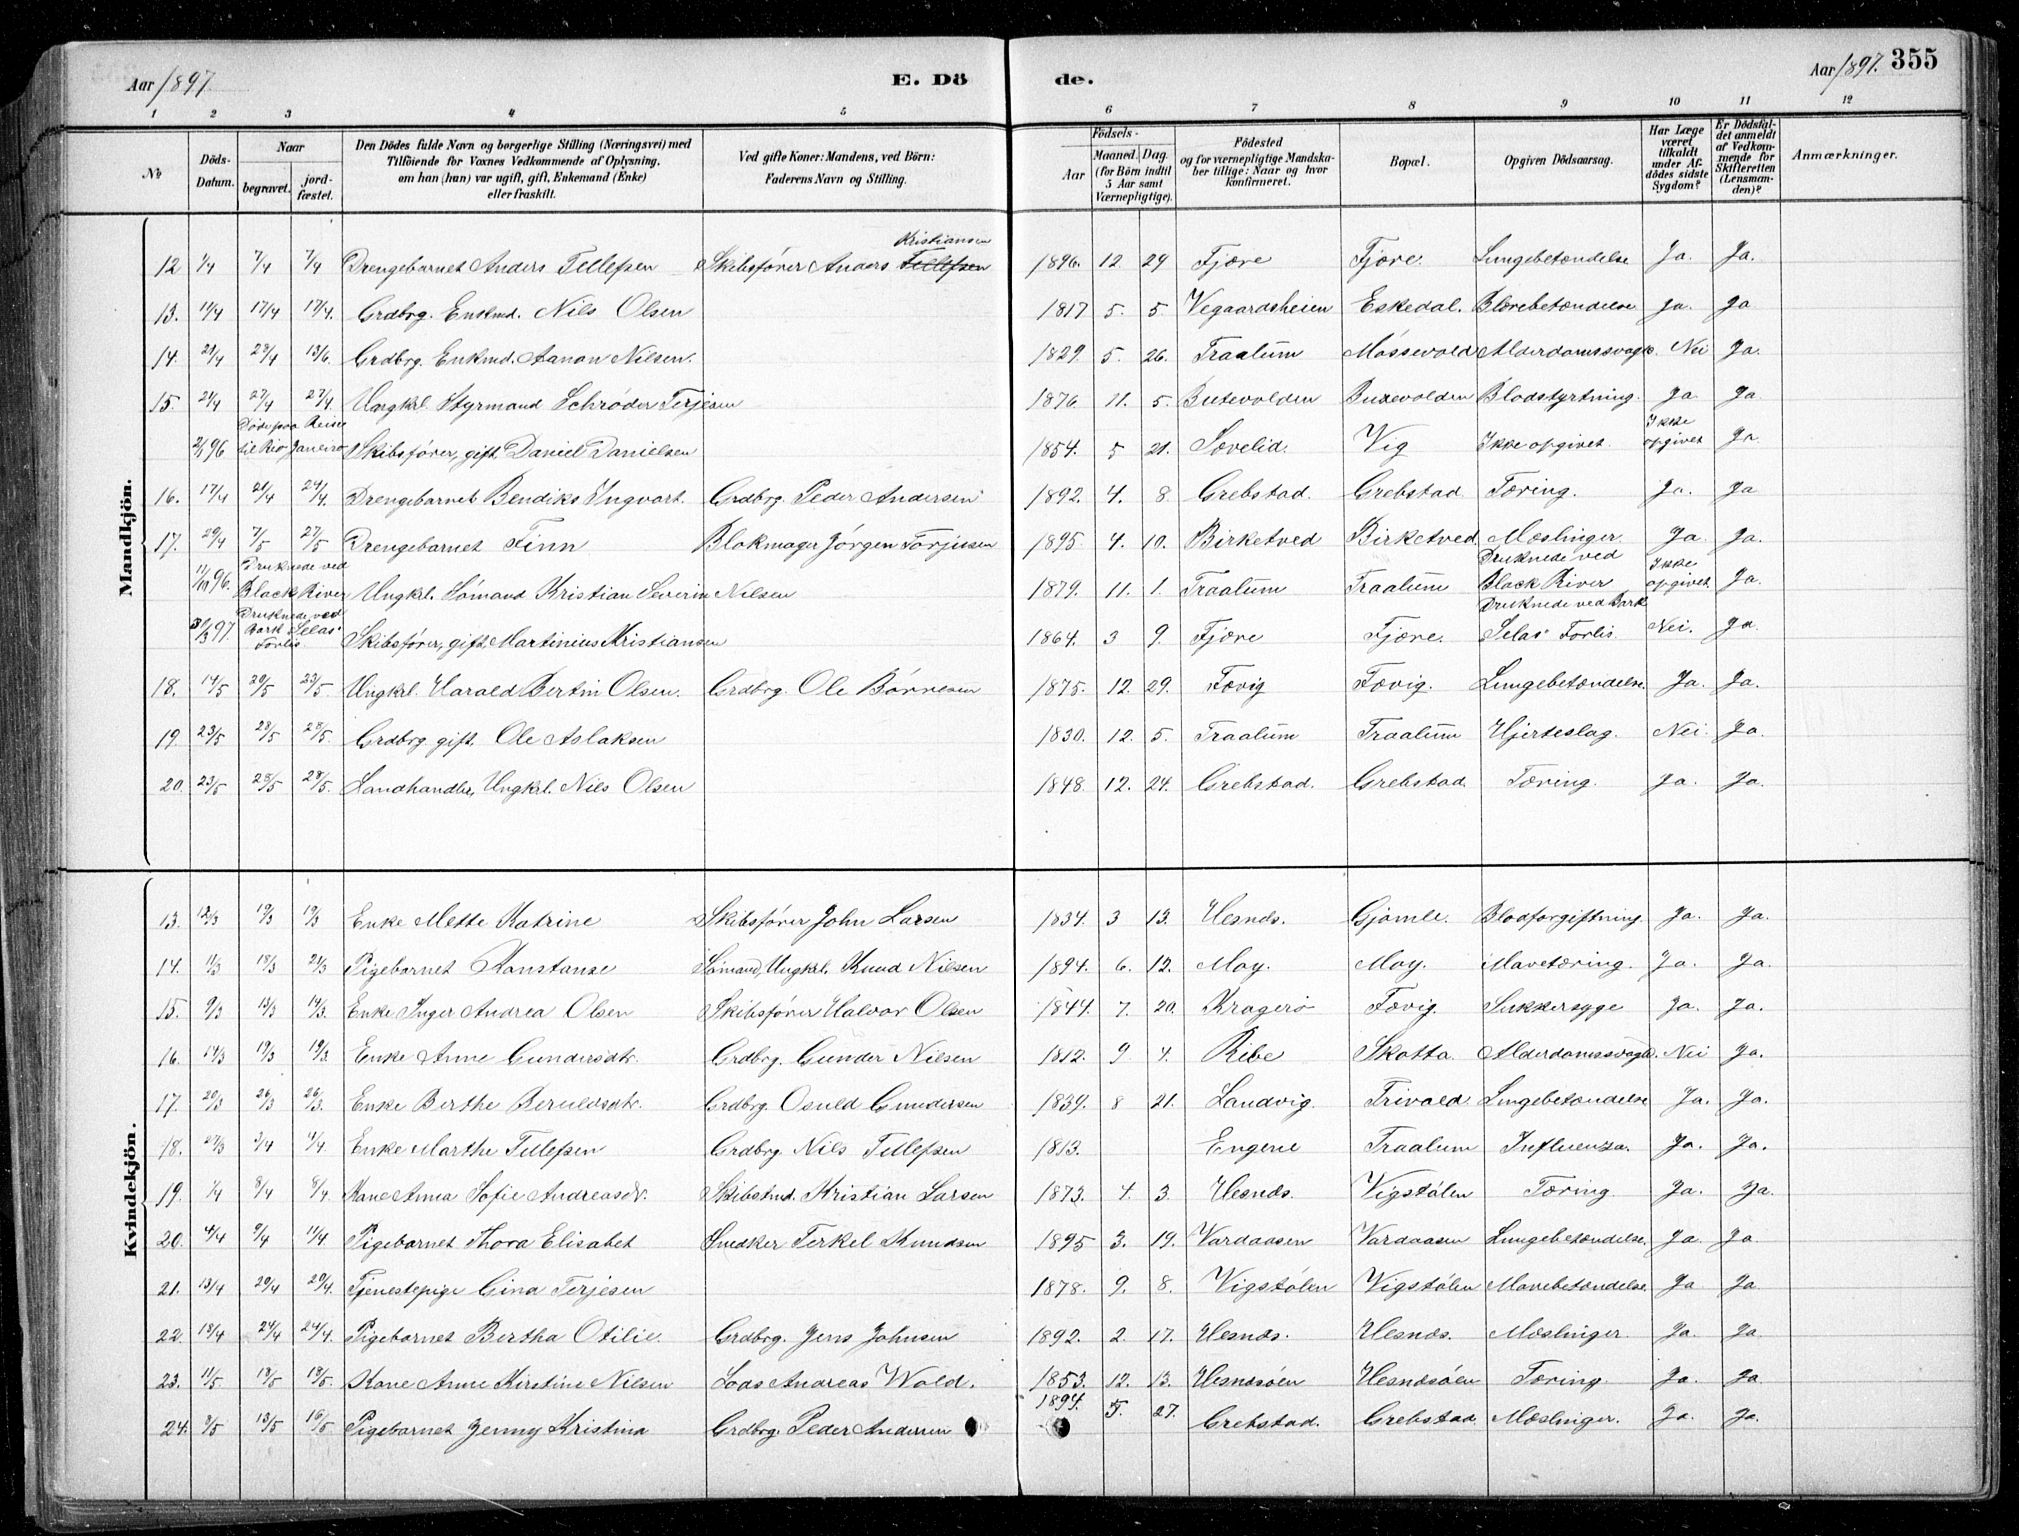 Aar 1897. E. Dö de. Aar 1897. 355
1 2 3 4 5 6 7 8 9 10 11 12
No Döds-Datum. Naar begravet. jordfæstet. Den Dödes fulde Navn og borgerlige Stilling (Næringsvei) med Tilföiende for Voxnes Vedkommende af Oplysning, om han (hun) var ugift, gift, Enkemand (Enke) eller fraskilt. Ved gifte Koner: Mandens, ved Börn: Faderens Navn og Stilling. Födsels- Aar Maaned. Dag. (for Börn indtil 5 Aar samt Værnepligtige). Födested og for værnepligtige Mandskaber tillige: Naar og hvor konfirmeret. Bopæl. Opgiven Dödsaarsag. Har Læge været tilkaldt under Afdödes sidste Sygdom? Er Dödsfaldet anmeldt af Vedkommende for Skifteretten (Lensmanden)? Anmærkninger.
Mandkjön.
Kristiansen
12 1/4 7/4 7/4 Drengebarnet Anders Tellefsen Skibsfører Anders Tellefsen 1896. 12. 24 Fjære Fjære. Lungebetændelse Ja. Ja.
13. 11/4 17/4 17/4. Grdbrg. Enkmd. Nils Olsen 1817 5. 5. Vegaardsheien Eskedal. Blærebetændelse Ja. Ja
14. 21/4 28/4 13/6. Grdbrg. Enkmd. Aanon Nilsen. 1829. 5. 26. Traalum Mossevold Alderdomssvagh. Nei Ja.
15. 21/4 27/4 27/4. Ungkrl. Styrmand Schrøder Terjesen 1876. 11. 5. Buxevolden Buxevolden Blodstyrtning. Ja. Ja
2/1 96 Døde paa Reise til Rio Janeiro Skibsfører, gift, Daniel Danielsen 1854. 5 21. Sævelid. Vig Ikke opgivet. Ikke opgivet Ja.
16. 17/4 21/4 24/4. Drengebarnet Bendiks Ingvart. Grdbrg. Peder Andersen 1892. 4. 8. Grebstad. Grebstad Tæring. Ja. Ja
17. 29/4 7/5 27/5 Drengebarnet Finn Blokmager Jørgen Torjusen 1895. 4. 10. Birketved Birketved Meslinger. Ja. Ja.
11/10 96. Druknede ved Black River Ungkl. Sømand Kristian Severin Nilsen 1879. 11. 1. Traalum Traalum Druknede ved Black River Ikke opgivet. Ja.
3/3 97. Druknede ved Bark "Selas" Forlis. Skibsfører, gift, Martinius Kristiansen 1864. 3 9. Fjære Fjære. Druknede ved Bark "Selas" Forlis Nei. Ja.
18. 14/5 20/5 23/5. Ungkrl. Harald Bertin Olsen. Grdbrg. Ole Børresen 1875. 12. 29. Fævig Fævig. Lungebetændelse. Ja. Ja.
19. 23/5 28/5 28/5. Grdbrg gift. Ole Aslaksen 1830. 12. 5. Traalum Traalum Hjerteslag. Nei. Ja.
20. 23/5 28/5 28/5. Landhandler, Ungkrl. Nils Olsen 1848. 12. 24. Grebstad. Grebstad. Tæring. Ja. Ja.
Kvindekjön.
13. 12/3 19/3 19/3 Enke Mette Katrine Skibsfører John Larsen 1834. 3 13. Hesnes. Gjømle. Blodforgiftning. Ja. Ja.
14. 11/3 18/3 21/3 Pigebarnet Konstanse Sømand, Ungkl. Knud Nilsen 1894. 6. 12. Moy. Moy. Mavetæring. Ja. Ja.
15. 9/3 13/3 14/3. Enke Inger Andrea Olsen Skibsfører Halvor Olsen 1844. 7. 20. Kragerø Fævig. Sukkersyge Ja. Ja.
16. 14/3 19/3 19/3. Enke Anne Gundersdtr. Grdbrg. Gunder Nilsen 1812. 9 4. Ribe Skatta. Alderdomssvagh. Nei Ja.
17. 20/3 26/3 26/3. Enke Berthe Beruldsdtr. Grdbrg. Osuld Gundersen 1839. 8 21. Landvig. Trivold. Lungebetændelse Ja. Ja.
18. 27/3 3/4 4/4. Enke Marthe Tellefsen Grdbrg. Nils Tellefsen 1813. Engene Traalum Influenza. Ja. Ja.
19. 1/4 8/4 8/4. Kone Anna Sofie Andreasdr. Skibstmd. Kristian Larsen 1873. 4. 3. Hesnes. Vigstølen Tæring. Ja. Ja.
20. 4/4 9/4 11/4 Pigebarnet Thora Elisabet Snedker Terkel Knudsen 1895 3. 19. Vardaasen Vardaasen Lungebetændelse. Ja. Ja
21. 13/4 20/4 20/4. Tjenestepige Gina Terjesen 1878. 9. 8. Vigstølen Vigstølen Mavebetændelse. Ja Ja
22. 18/4 24/4 24/4. Pigebarnet Bertha Otilie. Grdbrg. Jens Johnsen 1892. 2. 17. Hesnes. Hesnes. Meslinger. Ja. Ja.
23. 11/5 18/5 18/5. Kone Anne Kirstine Nilsen Lods Andreas Wold. 1853. 12. 13. Hesnesøen Hesnesøen Tæring. Ja. Ja
24. 8/5 13/5 16/5 Pigebarnet Jenny Kristina Grdbrg. Peder Andersen 1894. 5. 27. Grebstad. Grebstad. Meslinger. Ja. Ja.